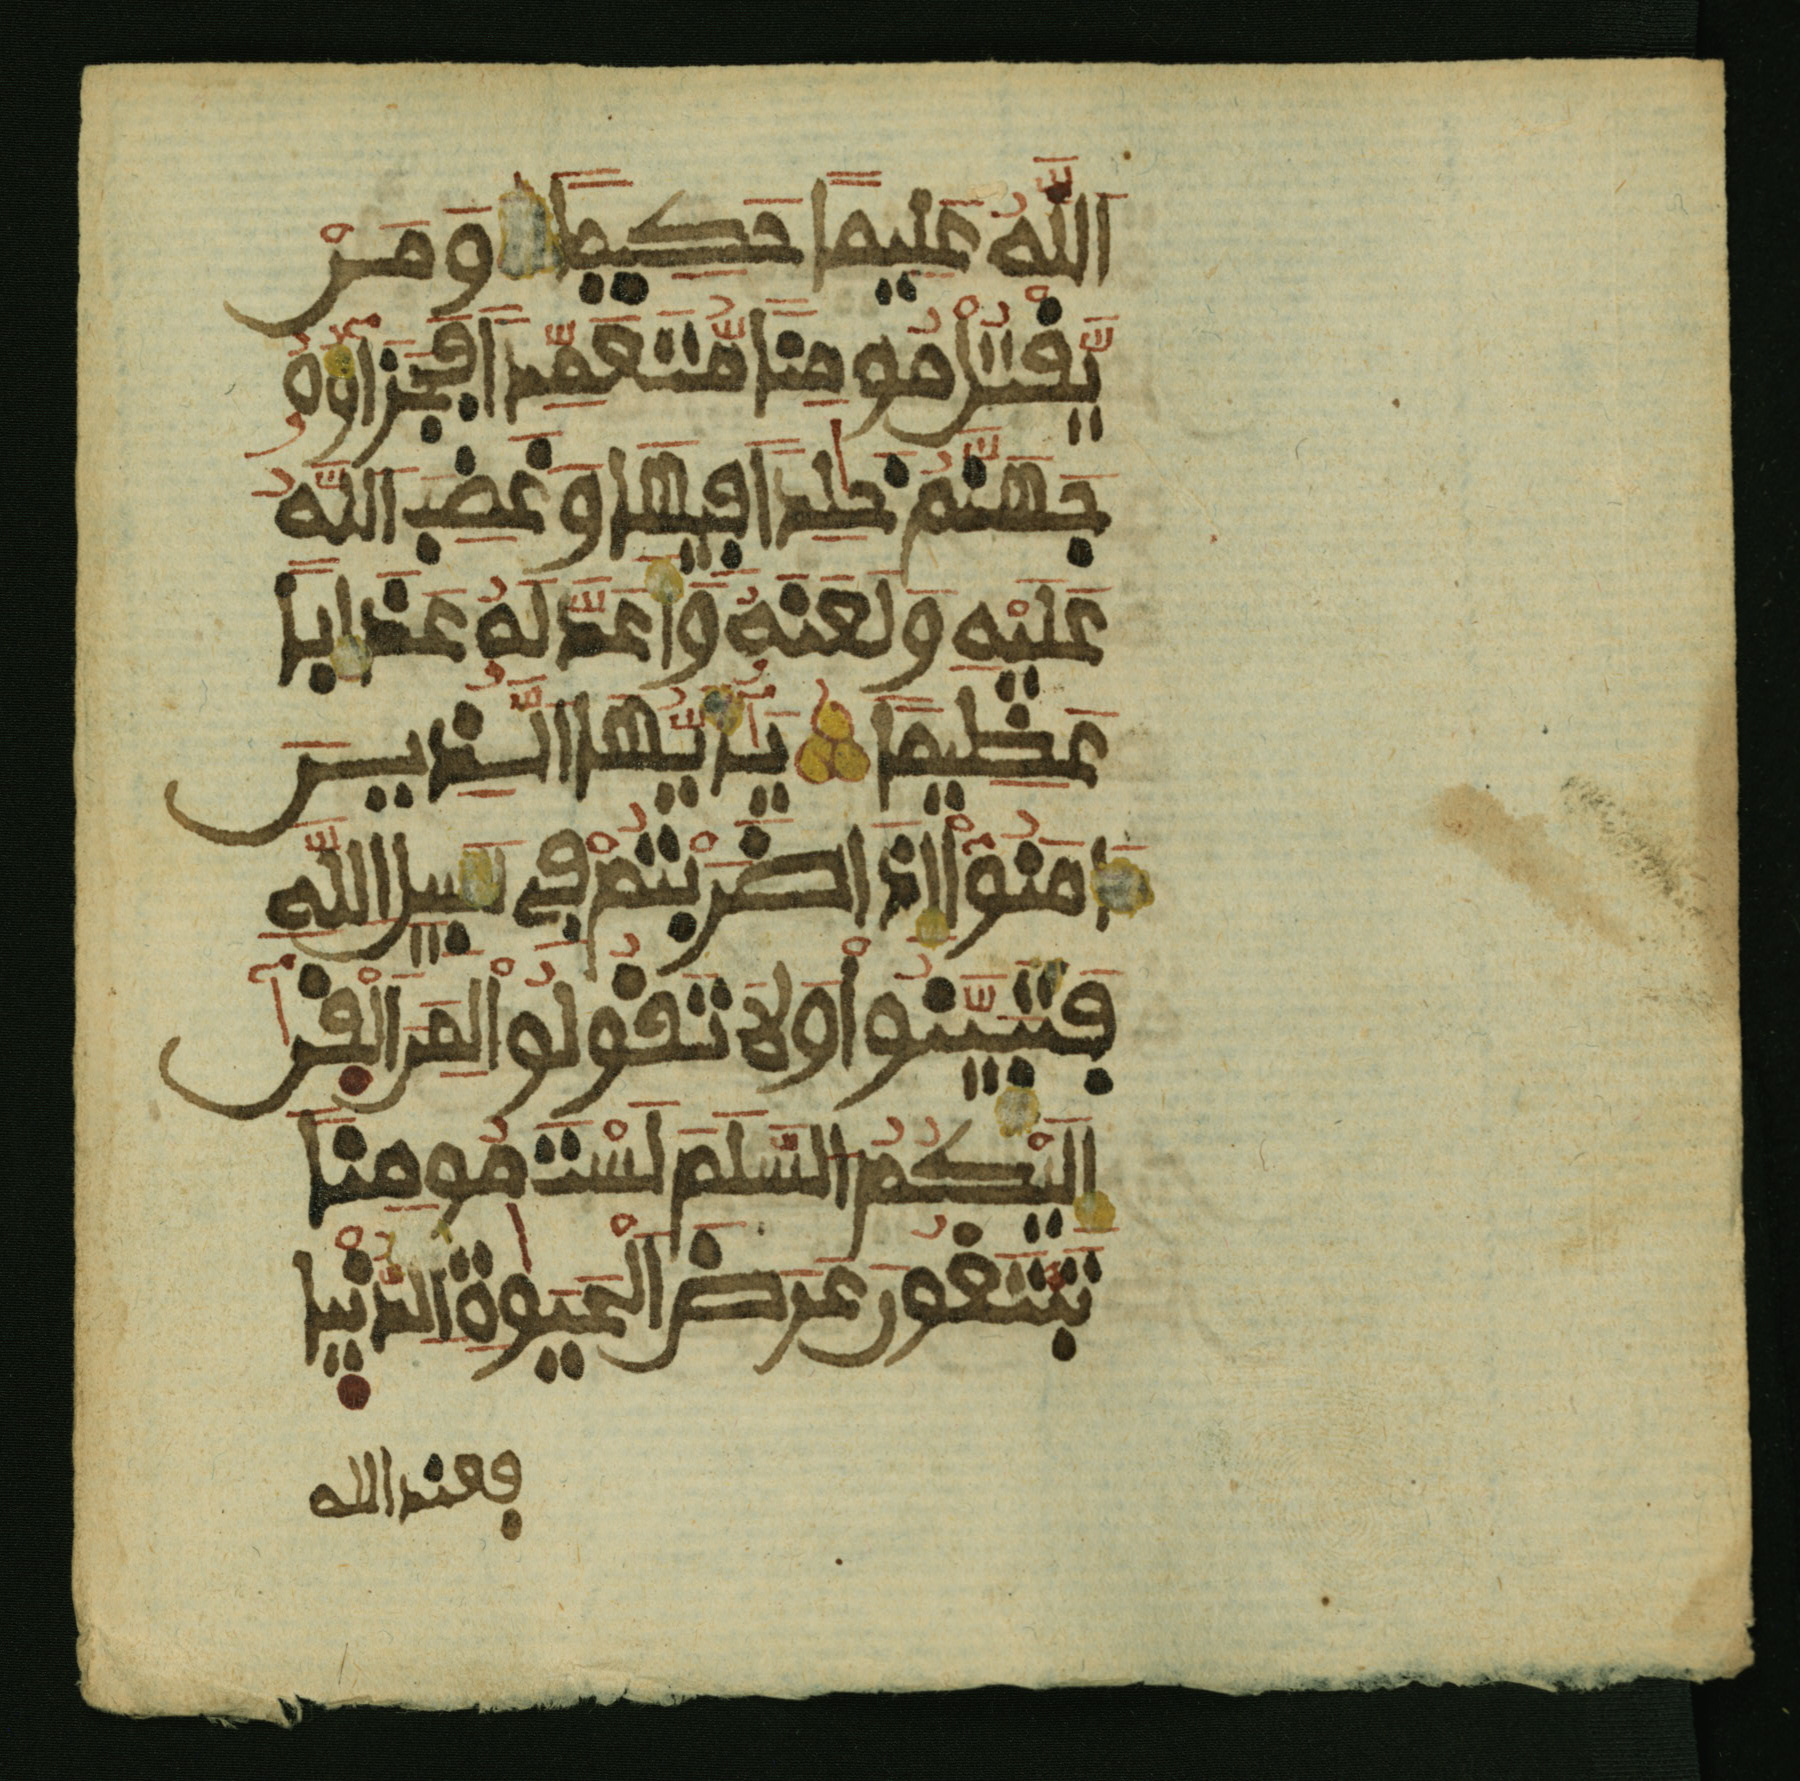 اَللَّهُ عَلِيماً حَكِيماً وَمَنْ
يَّقْتُلْ مُومِناً مُّتَعَمِّداً فَجَزَآؤُهُۥ
جَهَنَّمُ خَٰلِداً فِيهَا وَغَضِبَ اَللَّهُ
عَلَيْهِ وَلَعَنَهُۥ وَأَعَدَّ لَهُۥ عَذَاباً
عَظِيماً يَٰٓأَيُّهَا اَلذِينَ
ءَامَنُوٓاْ إِذَا ضَرَبْتُمْ فِي سَبِيلِ اِللَّهِ
فَتَبَيَّنُواْ وَلَا تَقُولُواْ لِمَنَ اَلْقَىٰٓ
إِلَيْكُمُ اُلسَّلَمَ لَسْتَ مُومِناً
تَبْتَغُونَ عَرَضَ اَلْحَيَوٰةِ اِلدُّنْيَا
فعند الله